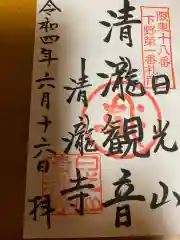 坂東十八番
下野第一番札所
日光山
清瀧観音
清瀧寺
令和四年六月十六日 拝